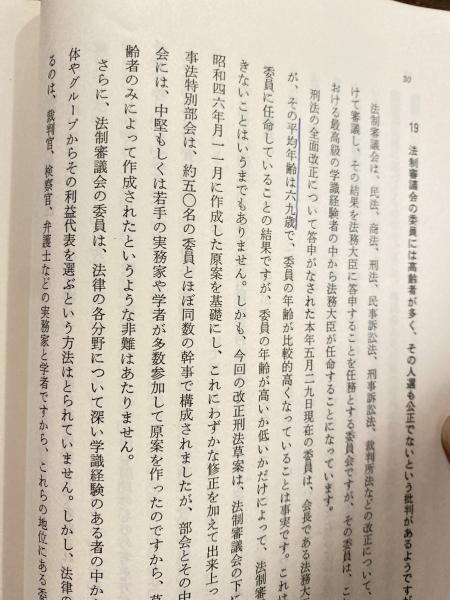 30
19 法制審議会の委員には高齢者が多く、その人選も公正でないという批判があるようですが
法制審議会は、民法、商法、刑法、民事訴訟法、刑事訴訟法、裁判所法などの改正について、
けて審議し、その結果を法務大臣に答申することを任務とする委員会ですが、その委員は、こ
おける最高級の学識経験者の中から法務大臣が任命することになっています。
刑法の全面改正について答申がなされた本年五月二九日現在の委員は、会長である法務大
が、その平均年齢は六九歳で、委員の年齢が比較的高くなっていることは事実です。これは
委員に任命していることの結果ですが、委員の年齢が高いか低いかだけによって、法制審
きないことはいうまでもありません。しかも、今回の改正刑法草案は、法制審議会の下
昭和四六年月一一月に作成した原案を基礎にし、これにわずかな修正を加えて出来上っ
事法特別部会は、約五〇名の委員とほぼ同数の幹事で構成されましたが、部会とその中
会には、中堅もしくは若手の実務家や学者が多数参加して原案を作ったのですから、草
齢者のみによって作成されたというような非難はあたりません。
さらに、法制審議会の委員は、法律の各分野について深い学識経験のある者の中か
体やグループからその利益代表を選ぶという方法はとられていません。しかし、法律の
るのは、裁判官、検察官、弁護士などの実務家と学者ですから、これらの地位にある委